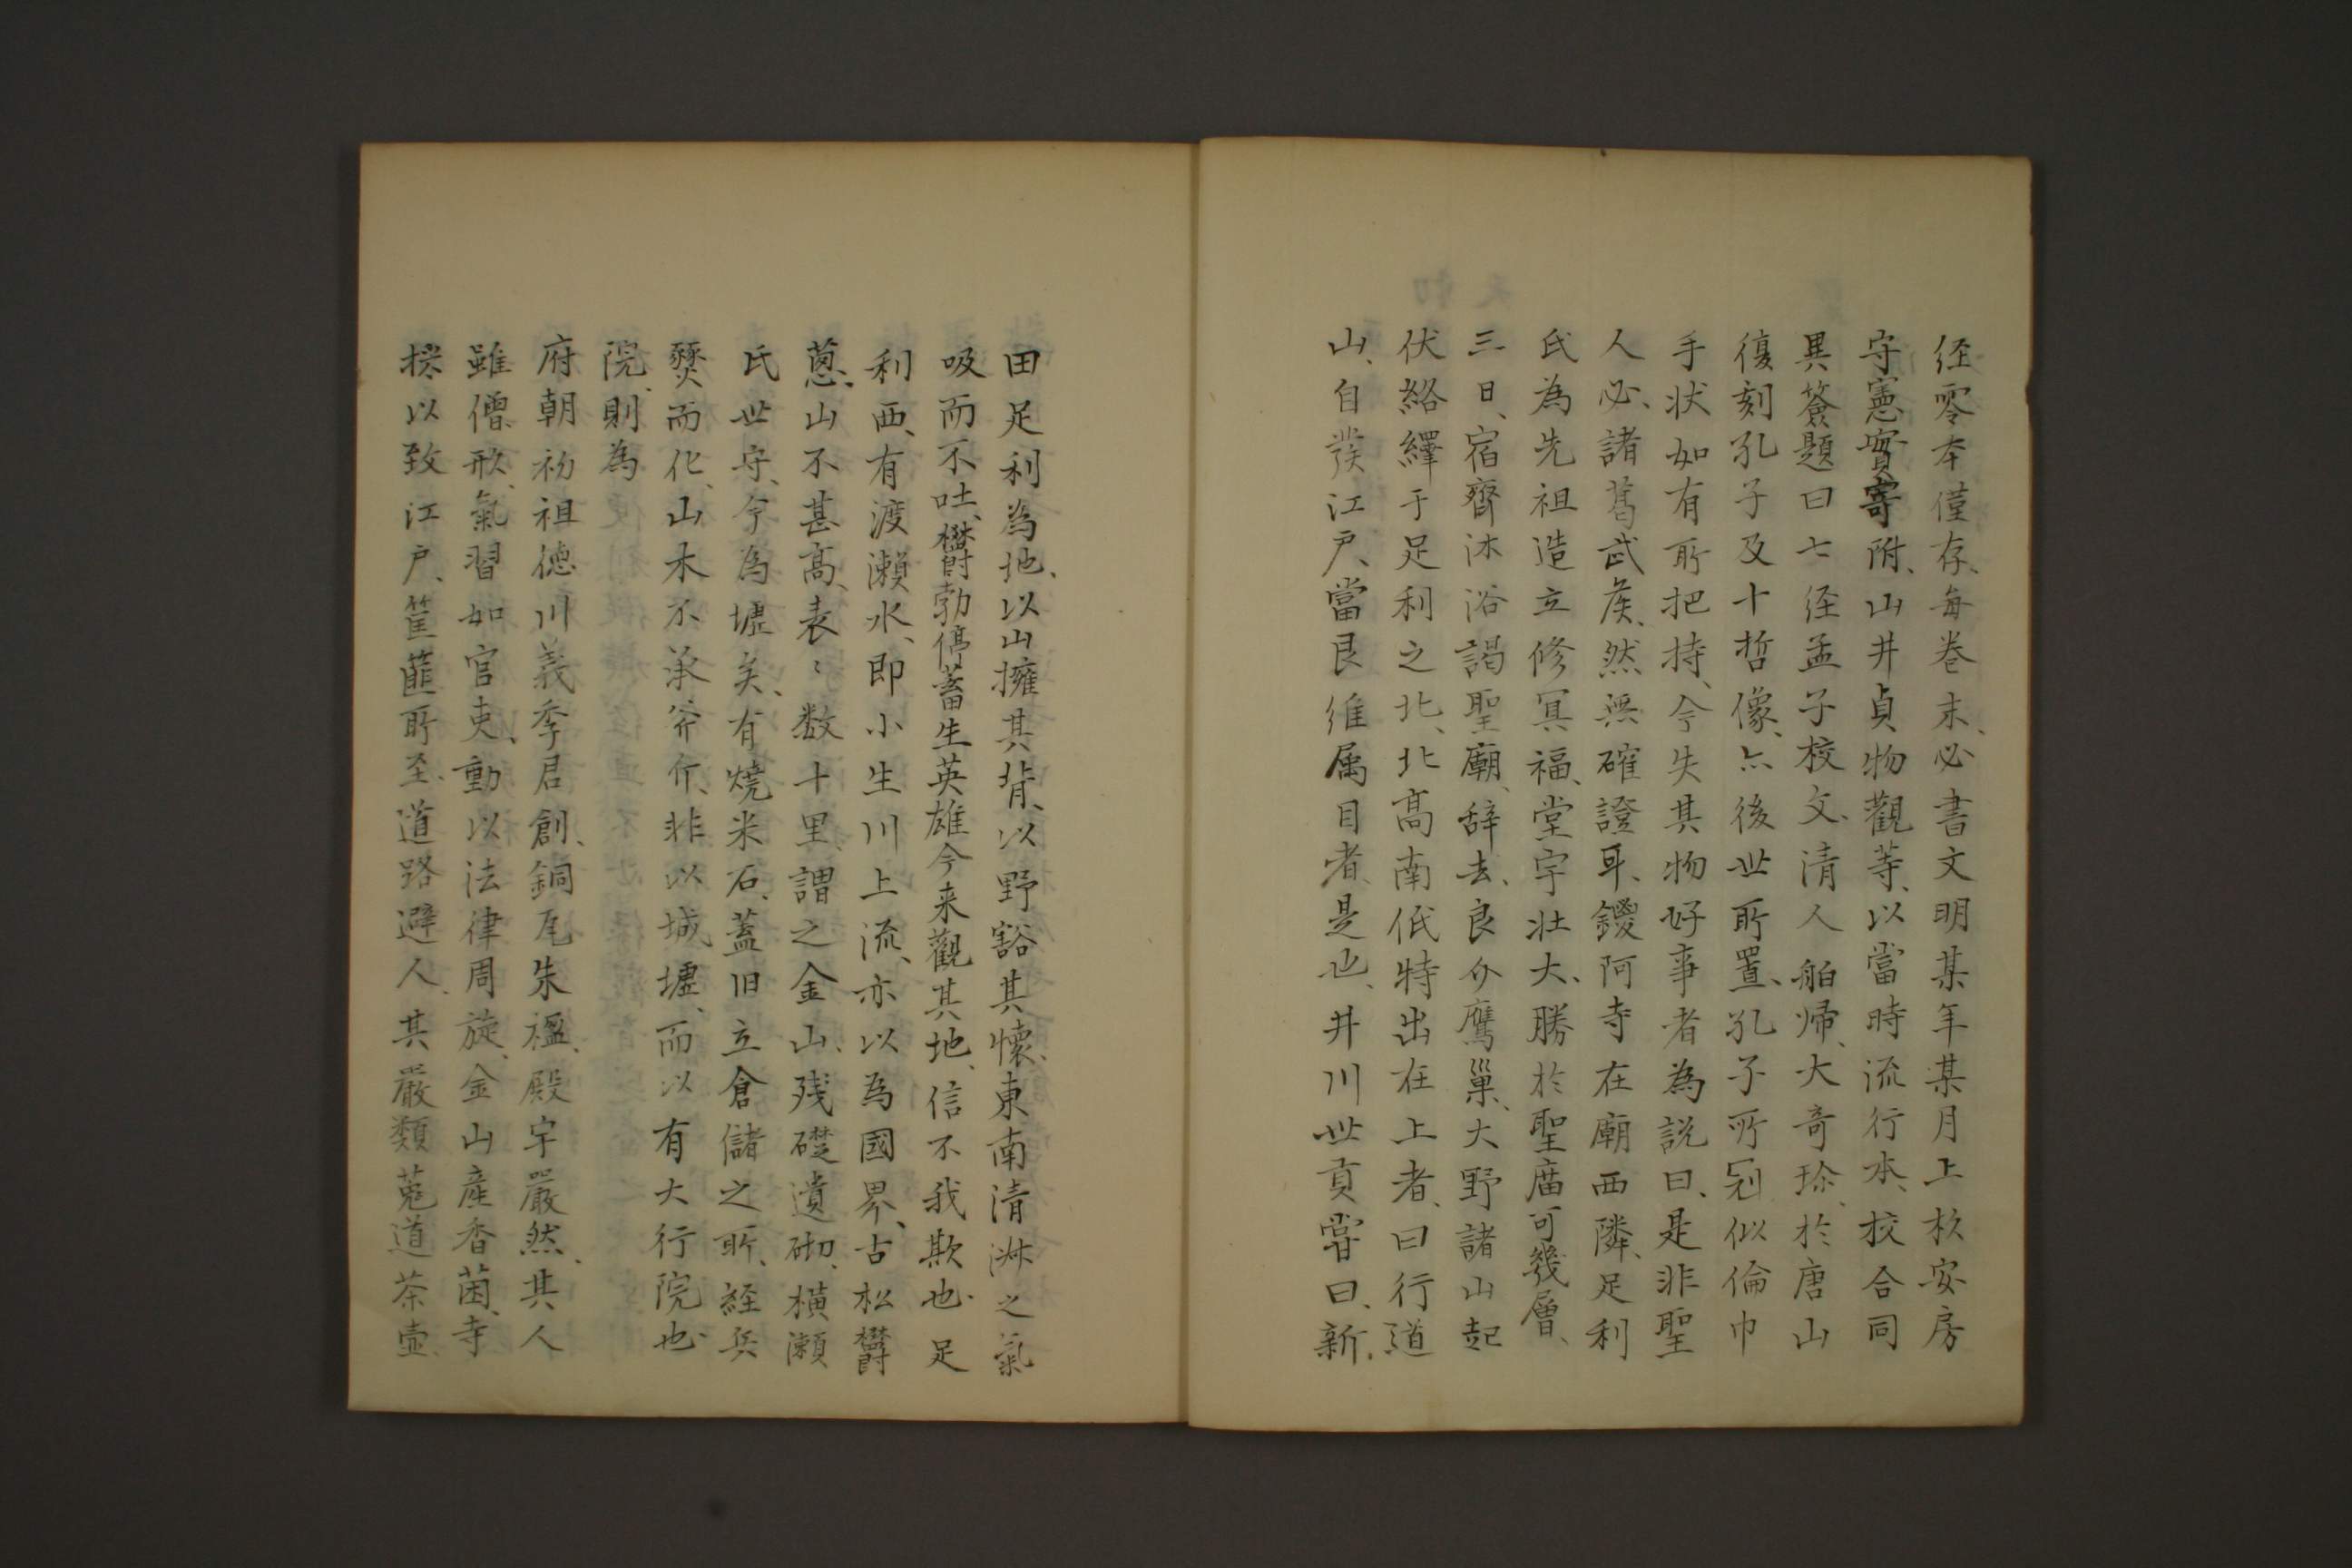 経零本僅存、毎巻末、必書文明某年某月上杦安房
守憲實寄附、山井貞物觀等、以當時流行本、校合同
異、簽題曰七経孟子校文、清人舶帰、大奇珍、於唐山
復刻孔子及十哲像、亦後世所置、孔子所冠似倫巾
手状如有所把持、今失其物好事者為説曰、是非聖
人必、諸葛武矦、然無確證耳、鑁阿寺在廟西隣、足利
氏為先祖造立修冥福、堂宇壮大、勝於聖庿可幾層、
三日、宿齊沐浴謁聖廟、辞去、良介鷹巢、大野諸山起
伏絡繹于足利之北、北高南低特出在上者、曰行道
山、自發江戸、當艮維属目者、是也、井川世貢嘗曰、新、
田足利為地、以山擁其背、以野豁其懷、東南清淋之氣
吸而不吐、欝勃停蓄生英雄今来觀其地、信不我欺也、足
利西、有渡瀬水、即小生川上流、亦以為國界、古松欝
蔥、山不甚高、表〻数十里、謂之金山、残礎遺砌、横瀬
氏世守、今為墟矣、有燒米石、蓋旧立倉儲之所、経兵
燹而化、山木不承斧斤、非以城墟、而以有大行院也
院、則為
府朝初祖徳川義季君創、銅瓦朱楹、殿宇嚴然、其人
雖僧形、氣習如官吏、動以法律周旋、金山産香菌、寺
採以致江戸、筐篚所至、道路避人、其嚴類菟道茶壷、